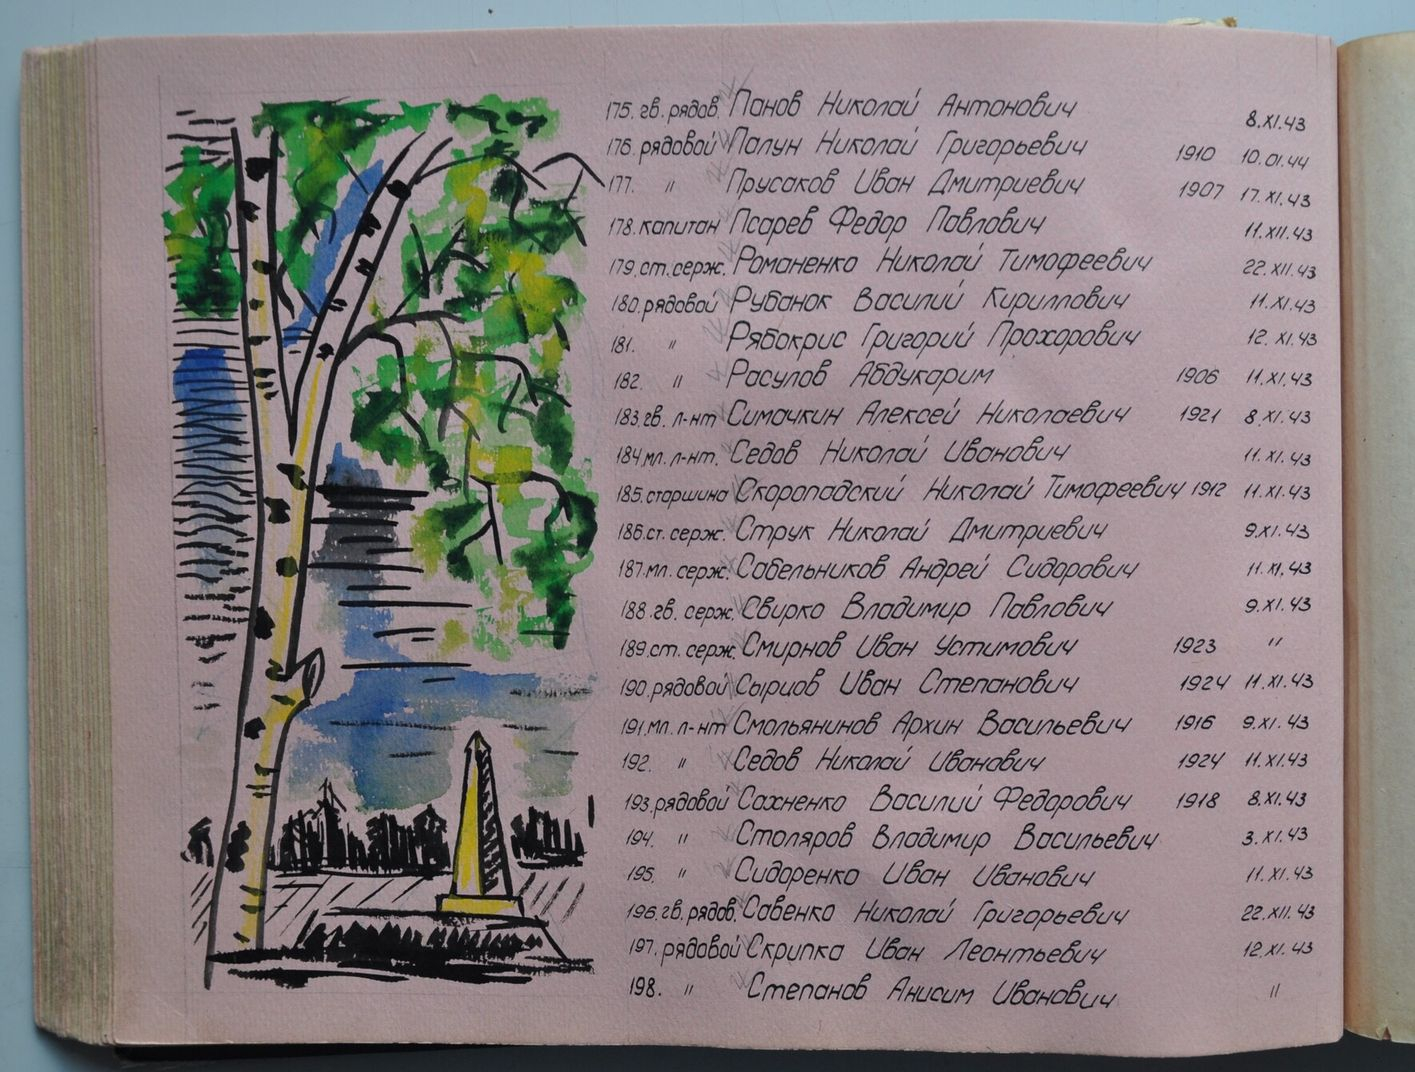 175. гв. рядов. Панов Николай Антонович 8.XI.43
176. рядовой Палун Николай Григорьевич 1910 10.01.44
177. " Прусаков Иван Дмитриевич 1907 17.XI.43
178. капитан Псарев Федор Павлович 11.XII.43
179. ст. серж. Романенко Николай Тимофеевич 22.XII.43
180. рядовой Рубанок Василий Кириллович 11.XI.43
181. " Рябокрис Григорий Прохорович 12.XI.43
182. " Расулов Абдукарим 1906 11.XI.43
183. гв. л-нт Симачкин Алексей Николаевич 1921 8.XI.43
184. мл. л-нт. Седов Николай Иванович 11.XI.43
185. старшина Скоропадский Николай Тимофеевич 1912 11.XI.43
186. ст. серж. Струк Николай Дмитриевич 9.XI.43
187. мл. серж. Сабельников Андрей Сидорович 11.XI.43
188. гв. серж. Свирко Владимир Павлович 9.XI.43
189. ст. серж. Смирнов Иван Устимович 1923 "
190. рядовой Сырцов Иван Степанович 1924 11.XI.43
191. мл. л-нт Смольянинов Архип Васильевич 1916 9.XI.43
192. " Седов Николай Иванович 1924 11.XI.43
193. рядовой Сахненко Василий Федорович 1918 8.XI.43
194. " Столяров Владимир Васильевич 3.XI.43
195. " Сидоренко Иван Иванович 11.XI.43
196. гв. рядов. Савенко Николай Григорьевич 22.XII.43
197. рядовой Скрипка Иван Леонтьевич 12.XI.43
198. " Степанов Анисим Иванович "